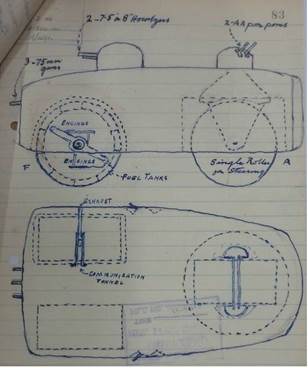 2-7·5" or 8" Howitzers
2-AA pom poms
83
3-75mm
guns
ENGINES
ENGINES
FUEL TANKS
F
Single Roller
for Steering
A
EXHAUST
COMMUNICATION
TUNNEL